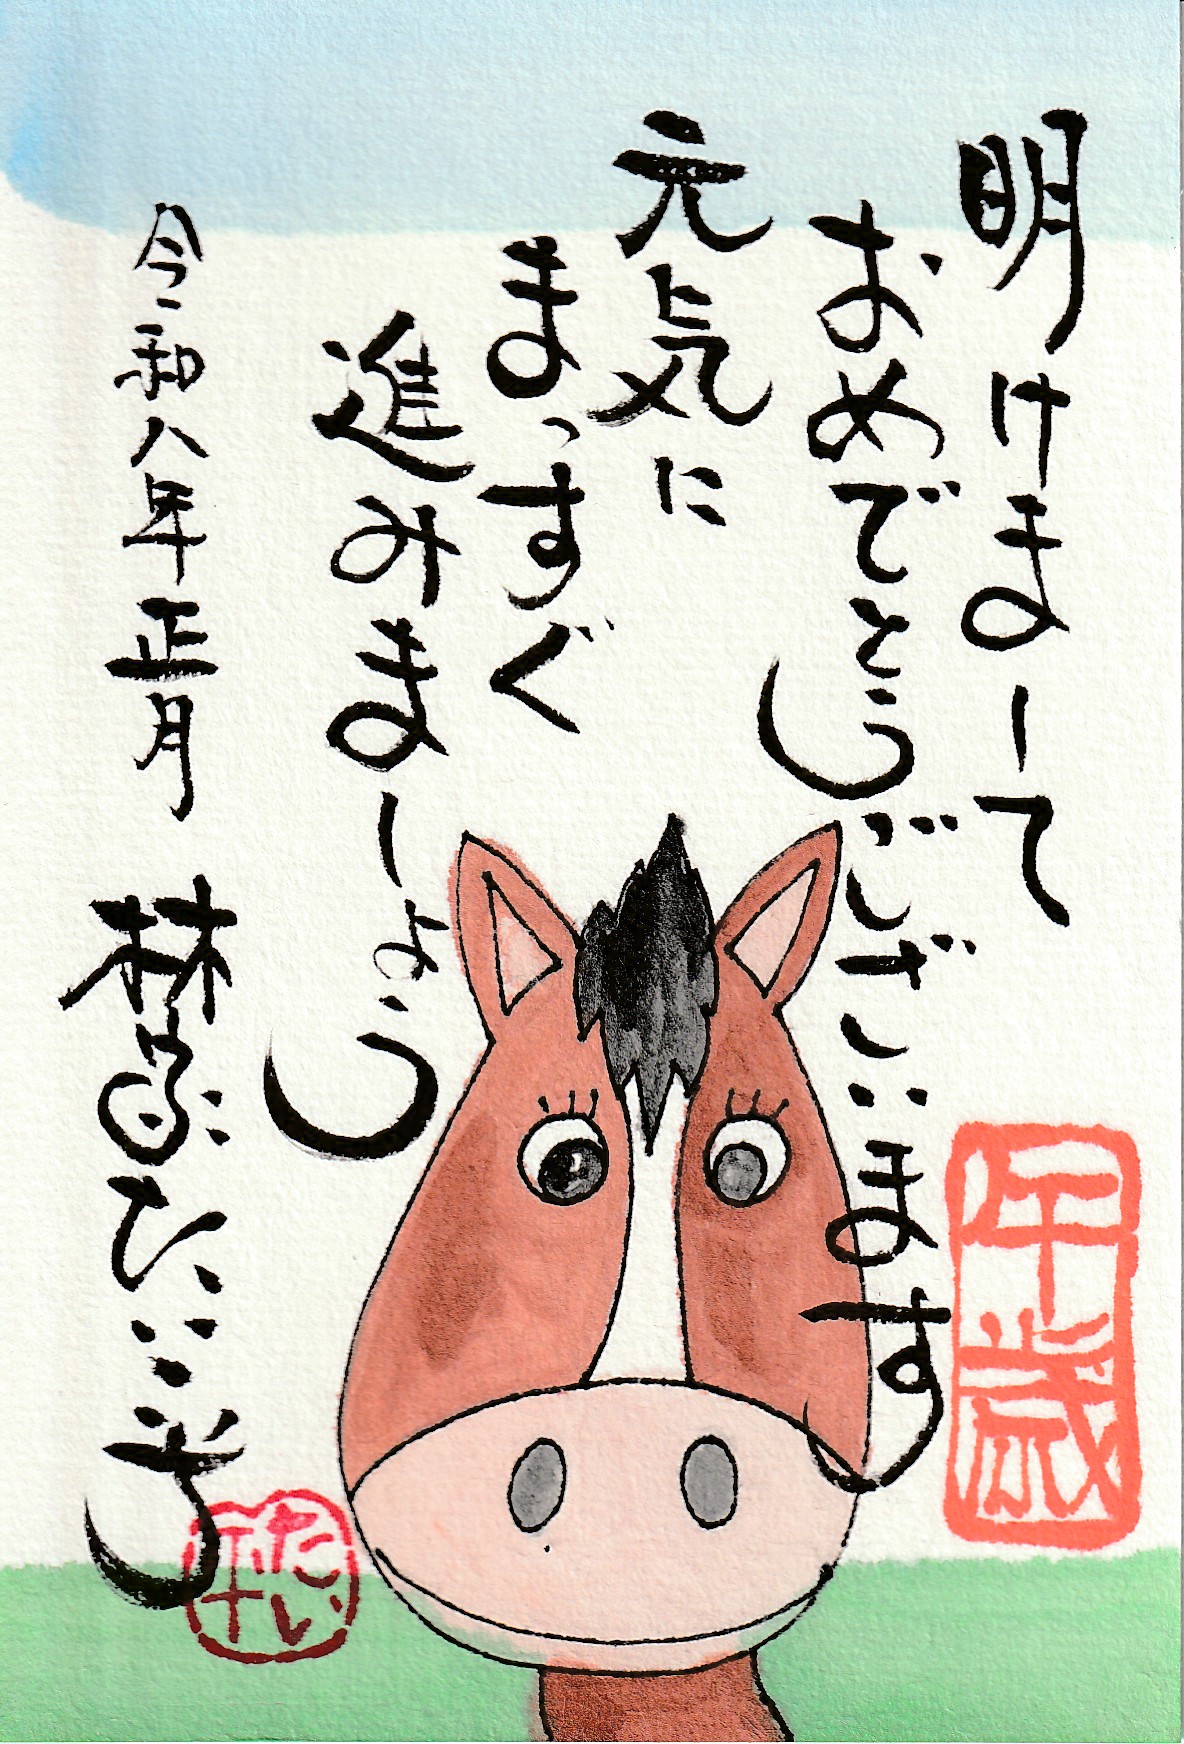 明けまして
おめでとうございます
元気に
まっすぐ
進みましょう
令和八年正月 林家たい平
午歳
たい平